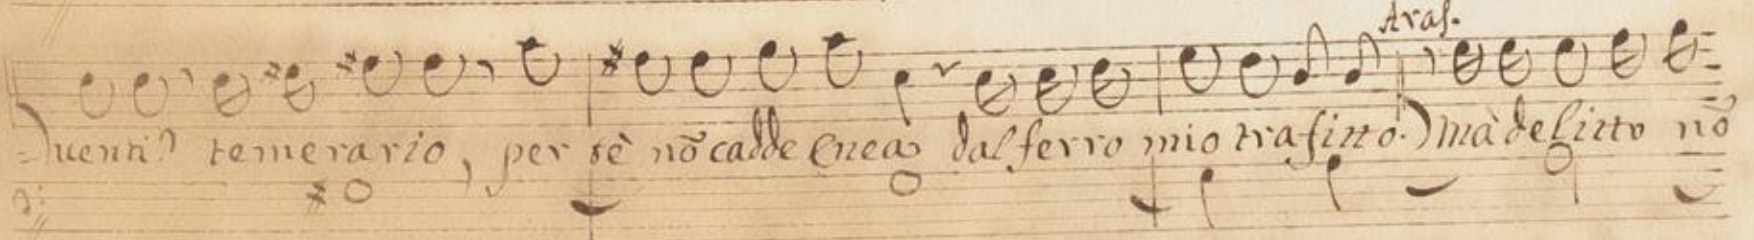 Aras.
=uenti? temerario, per tè nõ cadde Enea dal ferro mio trafitto.) mà delitto nõ